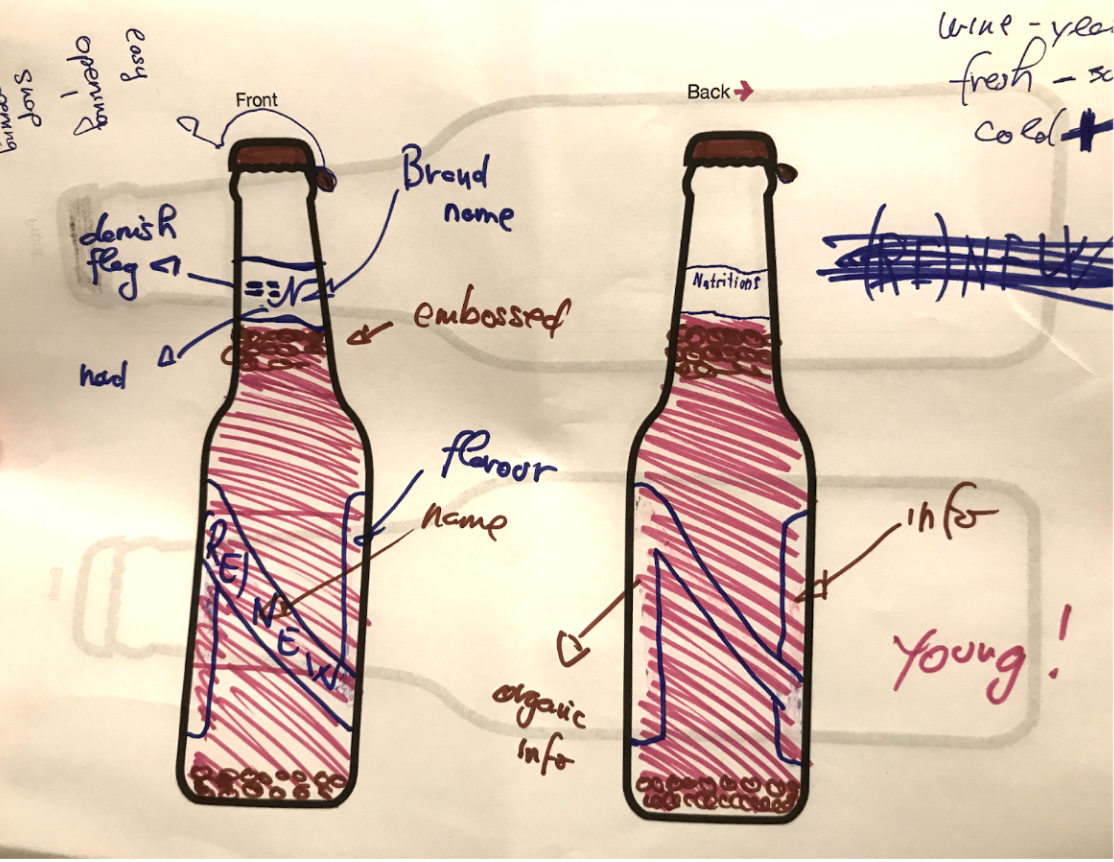 easy
opening
!
snop
Front
Back →
wine - yea
fresh -
cold +
Brand
name
danish
flag
N
embossed
Nutritions
(RE)NEW
flavour
name
(RE)NEW
info
organic
info
Young!